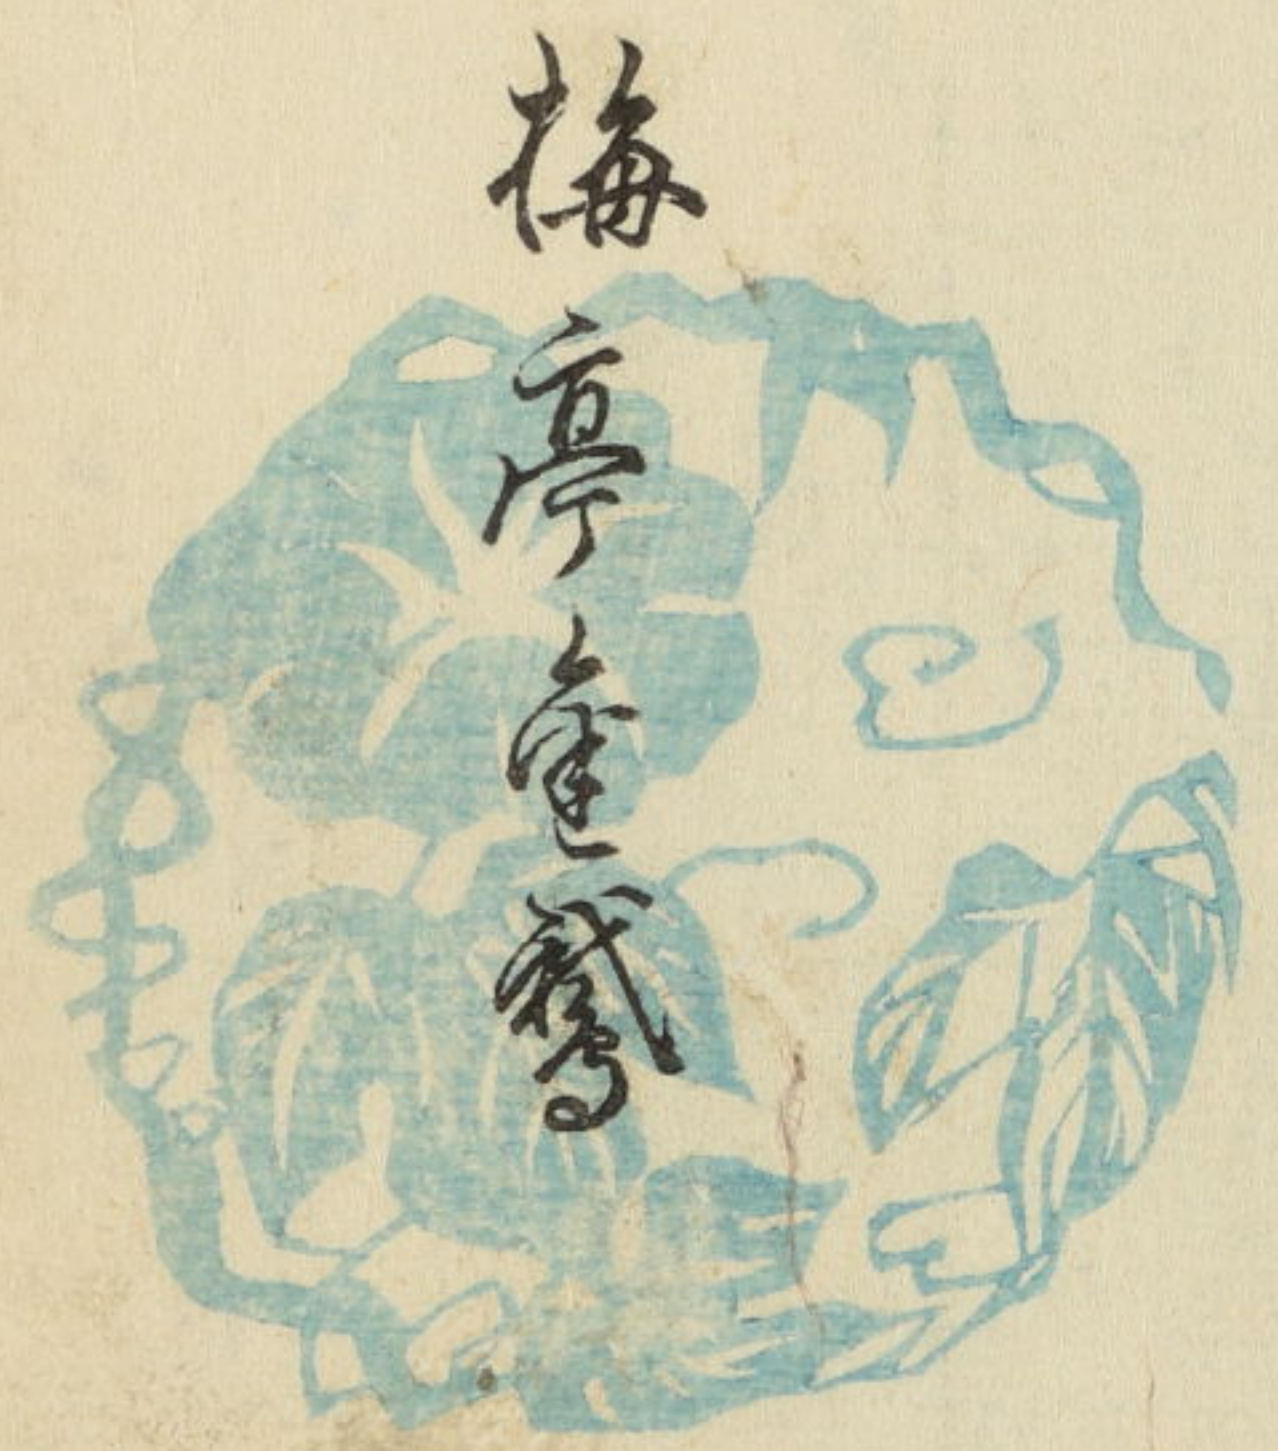 梅亭金鵞